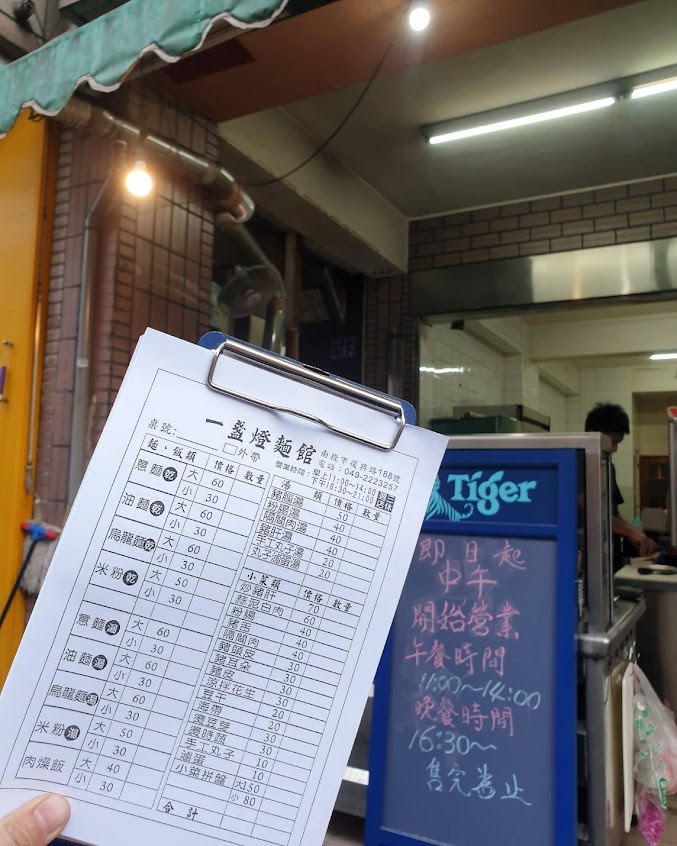 一盞燈麵館
桌號:
□外帶
南投市復興路168號
電話:049-2223257
營業時間:早上11:00~14:00
下午16:30~21:00
麵、飯類 價格 數量
意麵乾 大 60
小 30
油麵乾 大 60
小 30
烏龍麵乾 大 60
小 30
米粉乾 大 50
小 30
意麵湯 大 60
小 30
油麵湯 大 60
小 30
烏龍麵湯 大 60
小 30
米粉湯 大 50
小 30
肉燥飯 大 40
小 30
湯類 價格 數量
豬腦湯 50
粉腸湯 40
隔間肉湯 40
豬肝湯 40
手工丸子湯 20
丸子滷蛋湯 20
小菜類 價格 數量
炒豬肝 70
蒜泥白肉 60
粉腸 40
豬舌 40
隔間肉 40
豬頭皮 40
豬耳朵 30
豬皮 30
涼拌花生 30
豆干 20
海帶 20
燙豆芽 20
燙時蔬 30
手工丸子 10
滷蛋 10
小菜拼盤 大150
小 80
合計
Tiger
即日起
中午
開始營業
午餐時間
11:00~14:00
晚餐時間
16:30~
售完為止